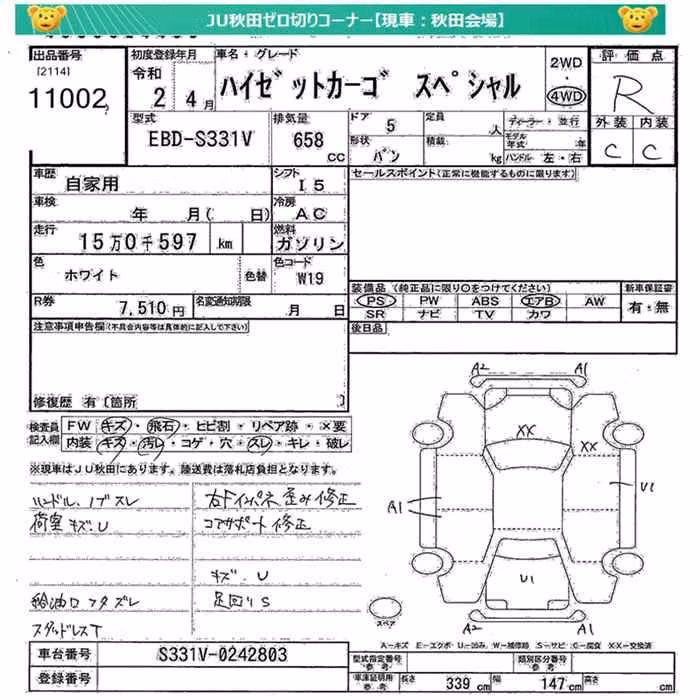 JU秋田ゼロ切りコーナー【現車：秋田会場】
出品番号
[2114]
11002
初度登録年月
令和
2年4月
車名・グレード
ハイゼットカーゴ スペシャル
2WD
・
4WD
評価点
R
外装 内装
C C
型式
EBD-S331V
排気量
658
CC
ドア
5
定員
人
形状
バン
積載
kg
ディーラー・並行
モデル年式 年
ハンドル 左・右
車歴
自家用
シフト
I5
車検
年 月( 日)
冷房
AC
走行
15万0千597 km
燃料
ガソリン
色
ホワイト
色替
色コード
W19
R券
7,510円
名変通知期限
月 日
セールスポイント(正常に機能するものに限ります)
装備品 (純正品に限り〇をつけてください)
新車保証書
PS PW ABS エアB AW
有・無
SR ナビ TV カワ
後日品
注意事項申告欄(不具合内容等は具体的に記入して下さい)
修復歴 有〔箇所 〕
検査員記入欄
FW キズ・飛石・ヒビ割・リペア跡・×要
内装 キズ・汚レ・コゲ・穴・スレ・キレ・破レ
※現車はJU秋田にあります。陸送費は落札店負担となります。
ハンドル、ノブスレ
荷室キズ、U
給油ロフタズレ
スタッドレスT
右ドインパネ歪み修正
コアサポート修正
キズ、U
足回りS
A2 A1
XX
XX
A1
U1
U1
A2 A1
スペア
A-キズ E-エクボ U-凹み W-補修跡 S-サビ C-腐食 XX-交換済
車台番号
S331V-0242803
登録番号
型式指定番号
参考
類別区分番号
参考
車庫証明用
参考
長さ 339cm
幅 147cm
高さ cm